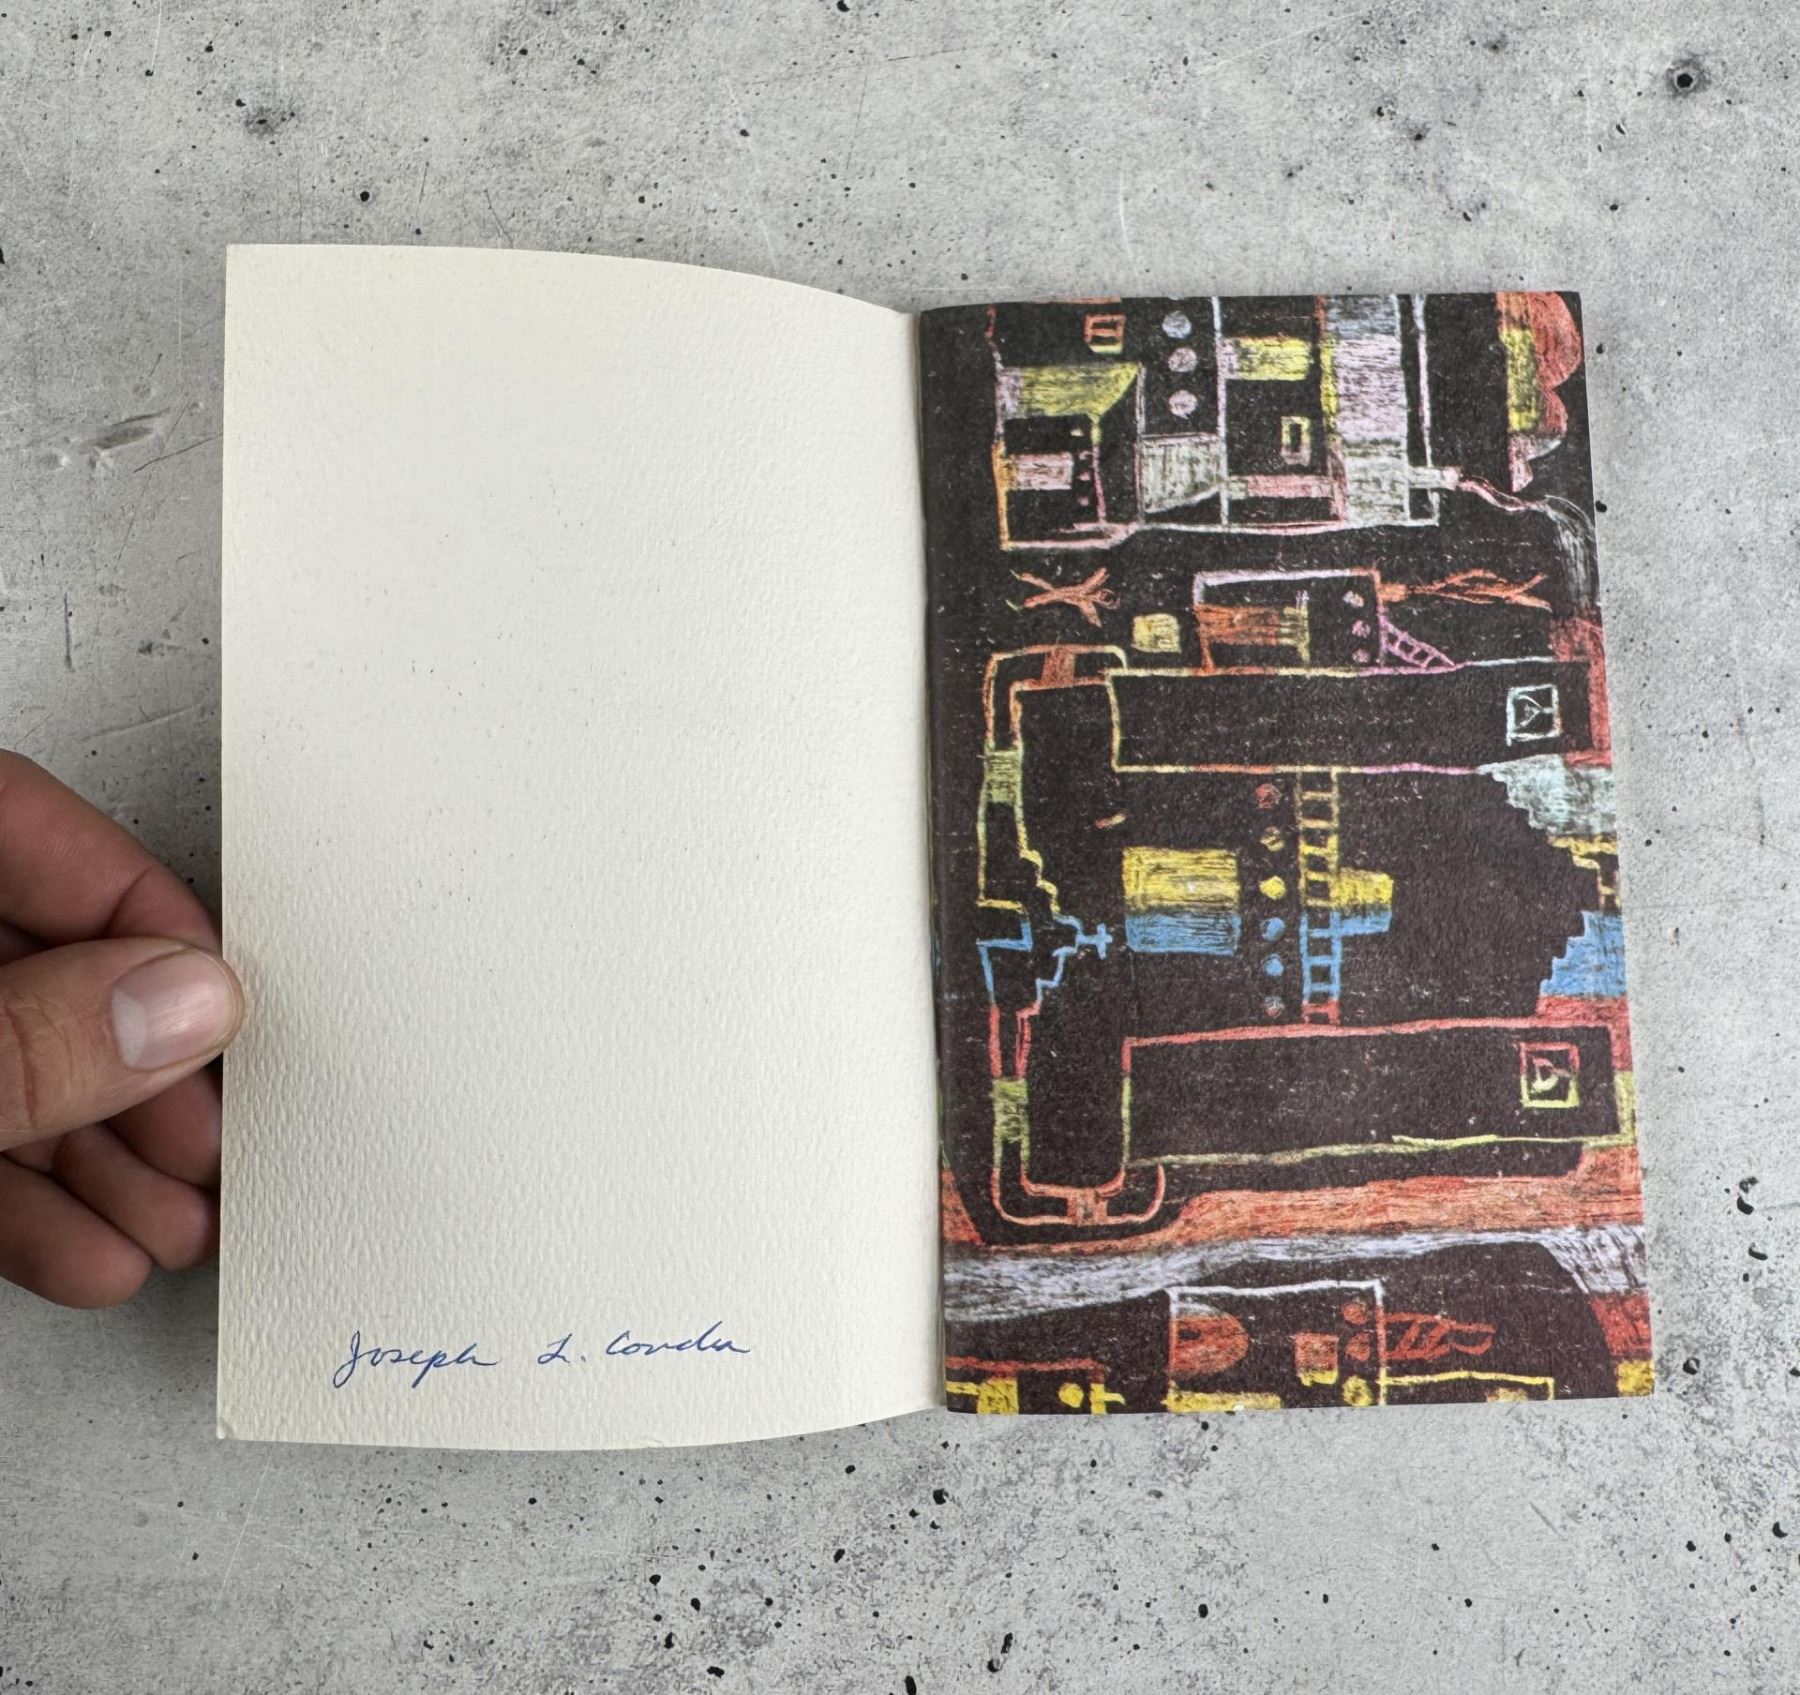 Joseph L. Conder